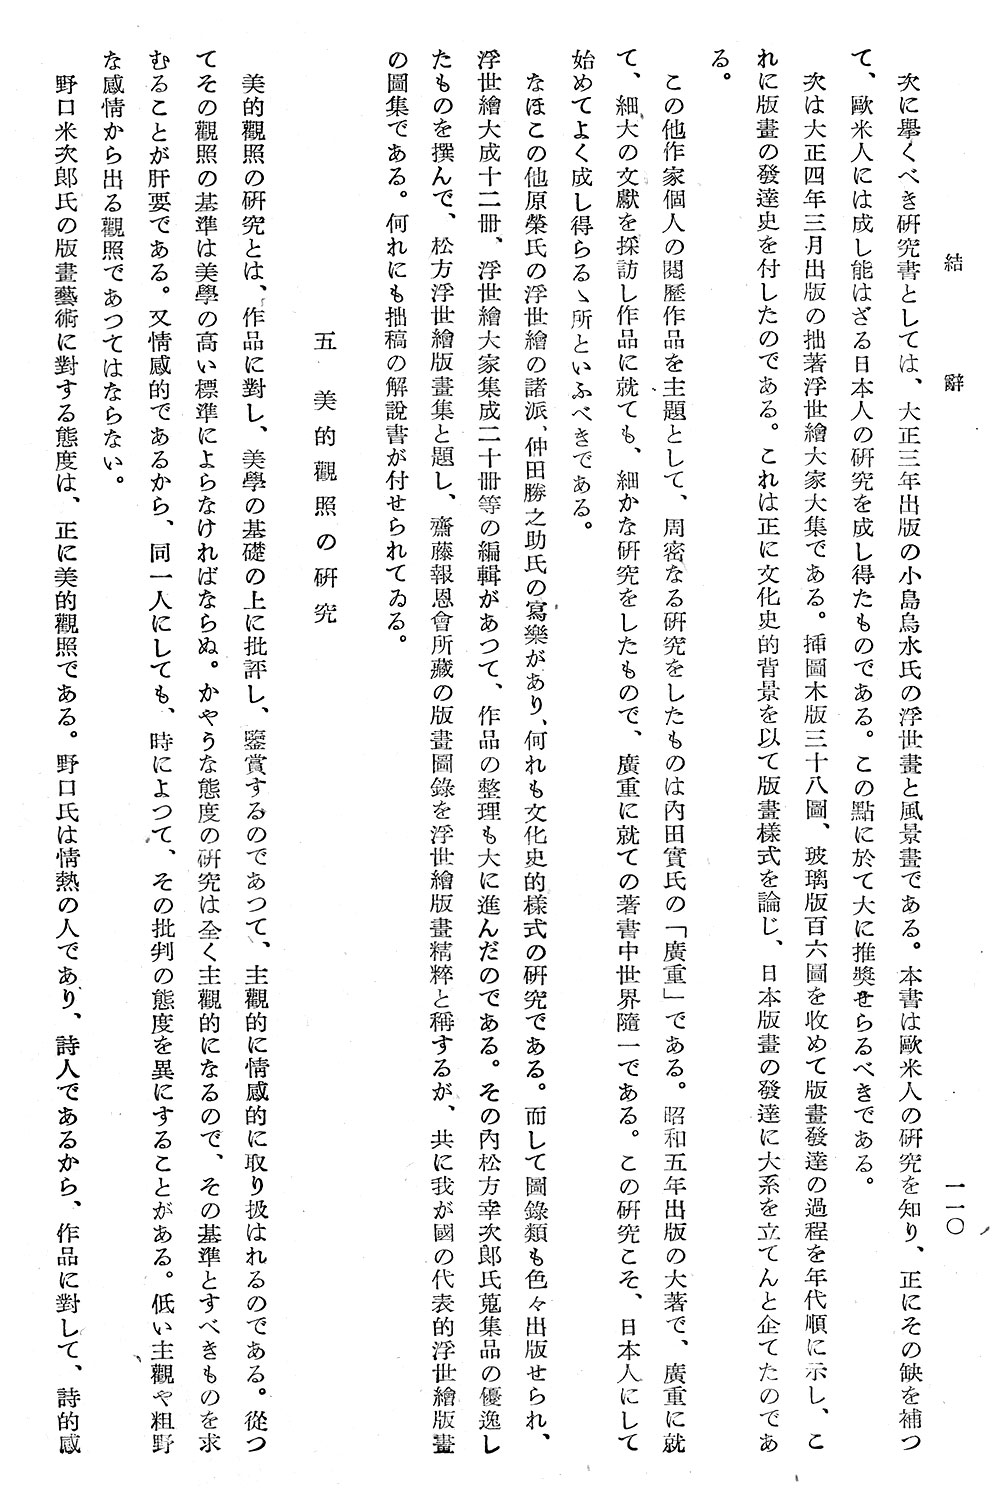 結辭
一一〇
次に擧くべき硏究書としては、大正三年出版の小島烏水氏の浮世畫と風景畫である。本書は歐米人の硏究を知り、正にその缺を補つ
て、歐米人には成し能はざる日本人の硏究を成し得たものである。この點に於て大に推奬せらるべきである。
次は大正四年三月出版の拙著浮世繪大家大集である。揷圖木版三十八圖、玻璃版百六圖を收めて版畫發達の過程を年代順に示し、こ
れに版畫の發達史を付したのである。これは正に文化史的背景を以て版畫樣式を論じ、日本版畫の發達に大系を立てんと企てたのであ
る。
この他作家個人の閱歷作品を主題として、周密なる硏究をしたものは內田實氏の「廣重」である。昭和五年出版の大著で、廣重に就
て、細大の文獻を採訪し作品に就ても、細かな硏究をしたもので、廣重に就ての著書中世界隨一である。この硏究こそ、日本人にして
始めてよく成し得らるゝ所といふべきである。
なほこの他原榮氏の浮世繪の諸派、仲田勝之助氏の寫樂があり、何れも文化史的樣式の硏究である。而して圖錄類も色々出版せられ、
浮世繪大成十二冊、浮世繪大家集成二十冊等の編輯があつて、作品の整理も大に進んだのである。その內松方幸次郞氏蒐集品の優逸し
たものを撰んで、松方浮世繪版畫集と題し、齋藤報恩會所藏の版畫圖錄を浮世繪版畫精粹と稱するが、共に我が國の代表的浮世繪版畫
の圖集である。何れにも拙稿の解說書が付せられてゐる。
五　美的觀照の硏究
美的觀照の硏究とは、作品に對し、美學の基礎の上に批評し、鑒賞するのであつて、主觀的に情感的に取り扱はれるのである。從つ
てその觀照の基準は美學の高い標準によらなければならぬ。かやうな態度の硏究は全く主觀的になるので、その基準とすべきものを求
むることが肝要である。又情感的であるから、同一人にしても、時によつて、その批判の態度を異にすることがある。低い主觀や粗野
な感情から出る觀照であつてはならない。
野口米次郞氏の版畫藝術に對する態度は、正に美的觀照である。野口氏は情熱の人であり、詩人であるから、作品に對して、詩的感